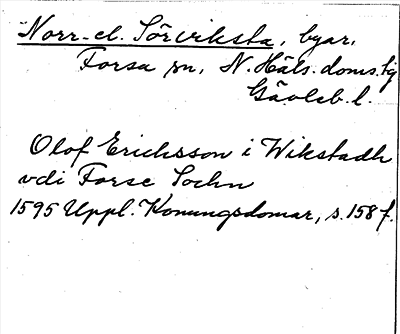 Norr- el. Sörviksta, byar,
Forsa sn, N. Häls. doms.hg
Gävleb. l.
Olof Erichsson i Wikstadh
vdi Forse Sochn
1595 Uppl. Konungsdomar, s. 158 f.